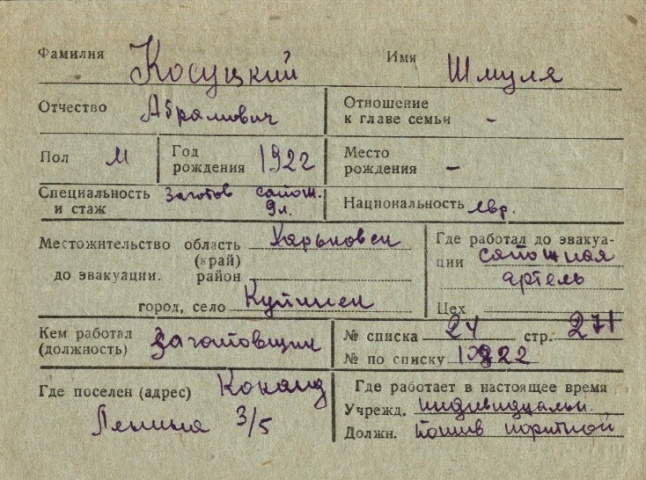 Фамилия Косуцкий Имя Шмуля
Отчество Абрамович Отношение к главе семьи -
Пол М Год рождения 1922 Место рождения -
Специальность и стаж Заготов сапож. 9 л. Национальность евр.
Местожительство область (край) Харьковск Где работал до эвакуа-
до эвакуации. район ции сапожная
город, село артель
Цех
Кем работал (должность) Заготовщик № списка 24 стр. 271
№ по списку
Где поселен (адрес) Коканд Где работает в настоящее время
Ленина 3/5 Учрежд. индивидуальн.
Должн. пошив